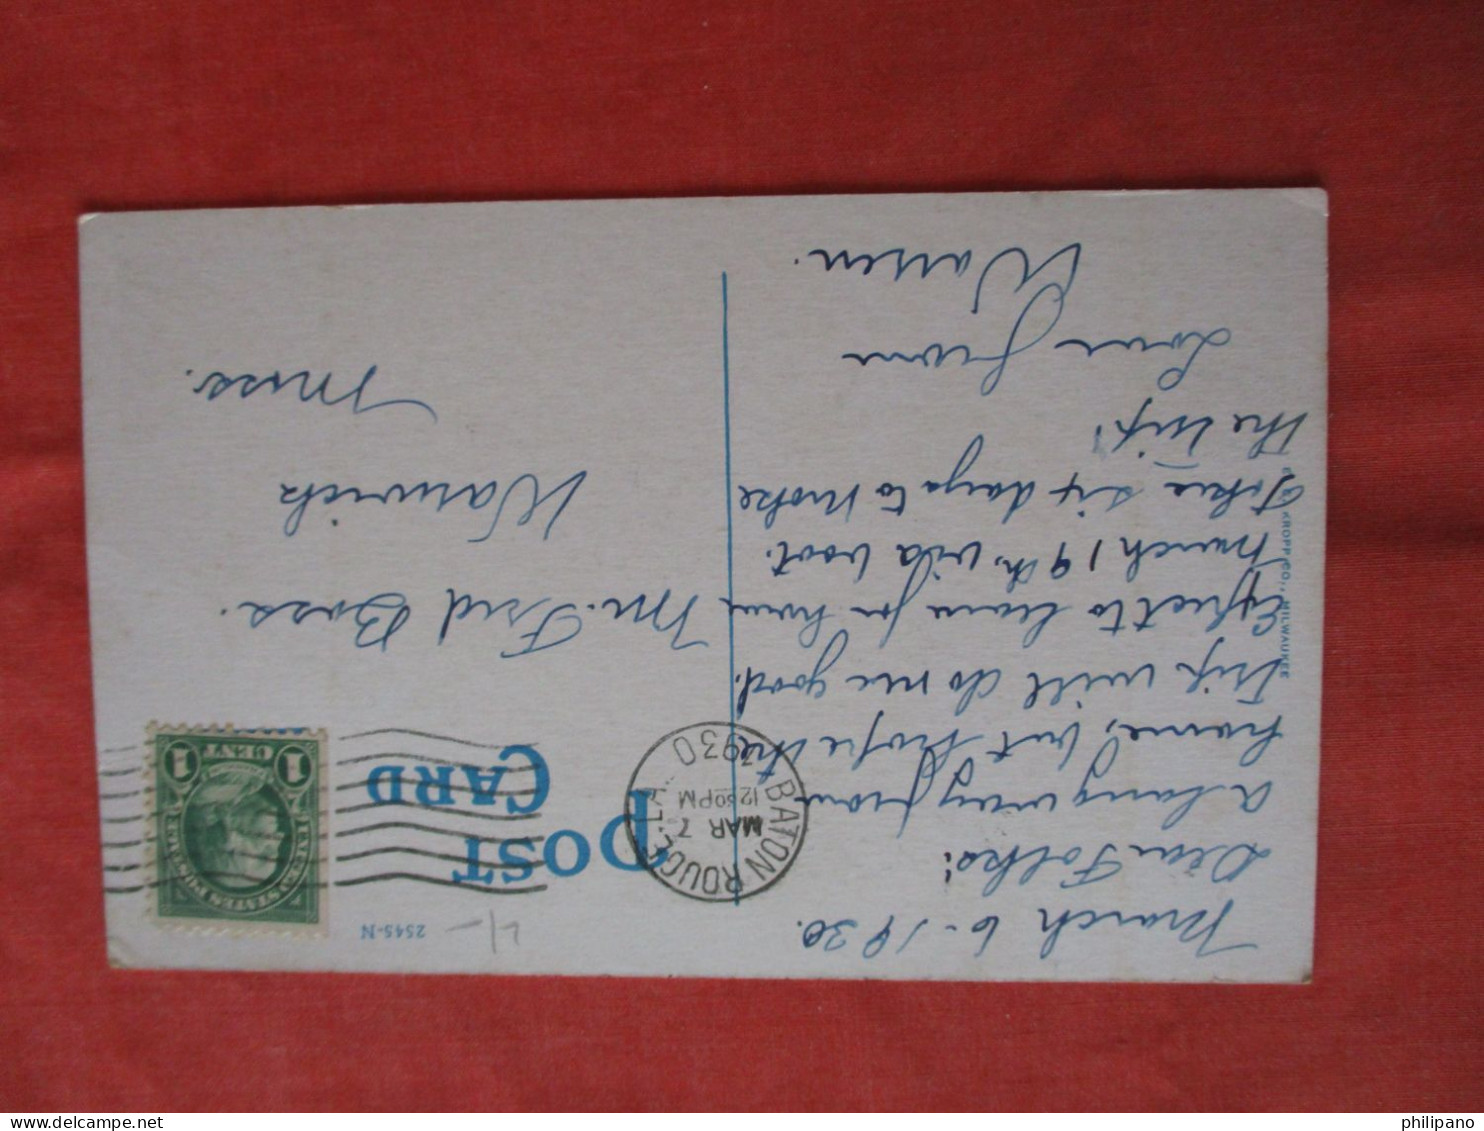 March 6 - 1930.
Dear Folks;
a long way from
home, but hope the
trip will do me good.
Expect to leave for home
March 19th, via boat.
Takes six days to make
the trip!
Love from
Warren.
POST
CARD
2545-N
BATON ROUGE, LA.
MAR 7
12 30 PM
1930
UNITED STATES POSTAGE
1 CENT 1
Mr. Fred Bass.
Warwick
Mass.
KROPP CO., MILWAUKEE
philipano